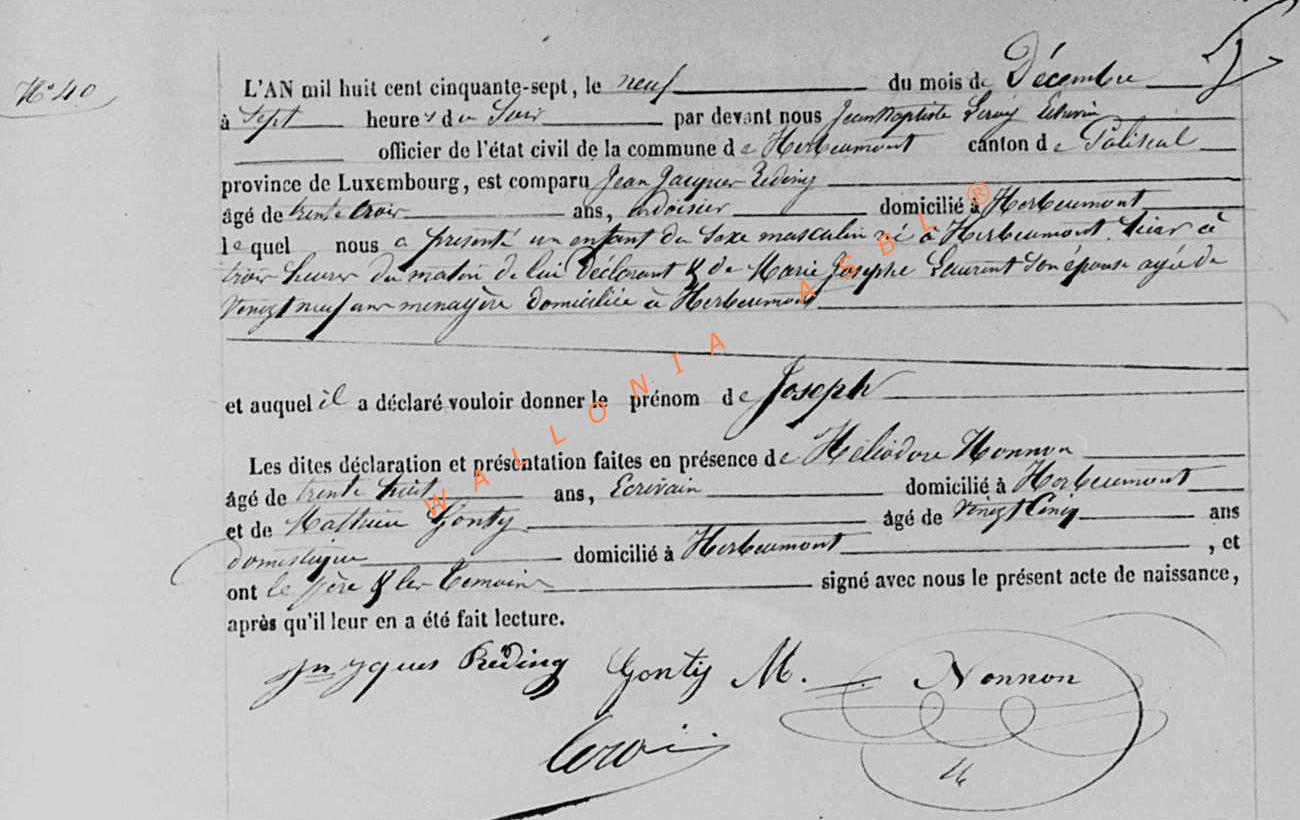 N° 40
L'AN mil huit cent cinquante-sept, le neuf du mois de Décembre
à sept heures du Soir par devant nous Jean Baptiste Leroy Echevin
officier de l'état civil de la commune de Herbeumont canton de Paliseul
province de Luxembourg, est comparu Jean Jacques Reding
âgé de trente trois ans, ardoisier domicilié à Herbeumont
lequel nous a présenté un enfant du Sexe masculin né à Herbeumont hier à
trois heures du matin de lui Déclarant & de Marie Josephe Laurent Son épouse agée de
Vingt neuf ans menagère domiciliée à Herbeumont
et auquel il a déclaré vouloir donner le prénom de Joseph
Les dites déclaration et présentation faites en présence de Héliodore Nonnon
âgé de trente huit ans, Ecrivain domicilié à Herbeumont
et de Mathieu Gonty âgé de Vingt Cinq ans
domestique domicilié à Herbeumont , et
ont le père & les temoins signé avec nous le présent acte de naissance,
après qu'il leur en a été fait lecture.
Reding Gonty M. Nonnon
Leroi
WALLONIA ASBL ®